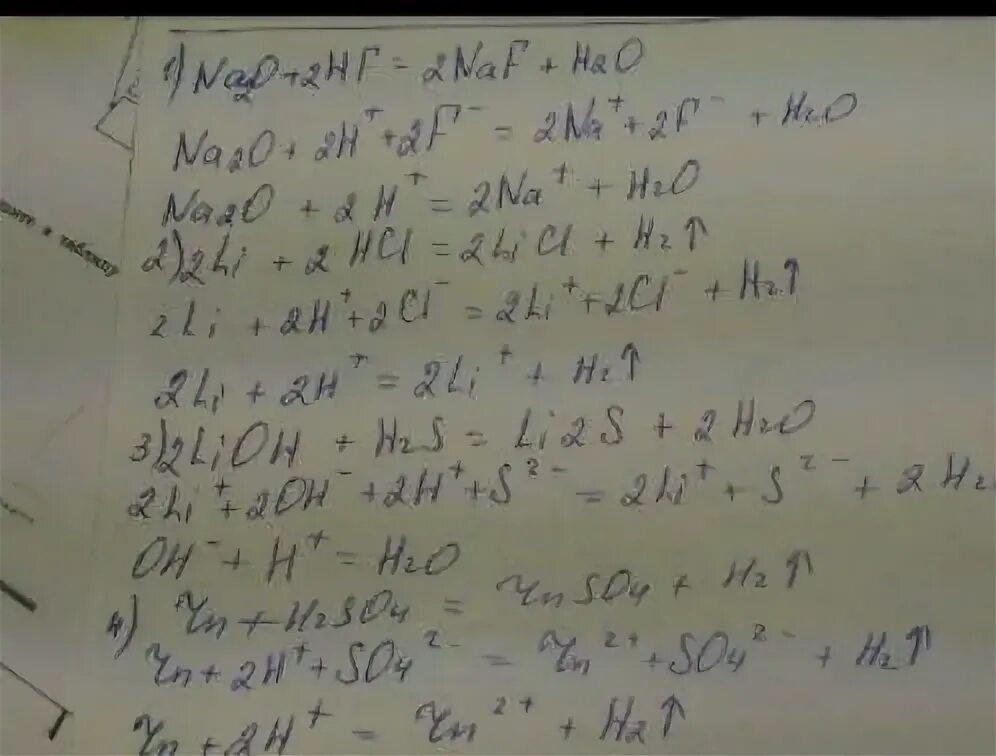 1) Na2O + 2HF = 2NaF + H2O
Na2O + 2H⁺ + 2F⁻ = 2Na⁺ + 2F⁻ + H2O
Na2O + 2H⁺ = 2Na⁺ + H2O
2) 2Li + 2HCl = 2LiCl + H2↑
2Li + 2H⁺ + 2Cl⁻ = 2Li⁺ + 2Cl⁻ + H2↑
2Li + 2H⁺ = 2Li⁺ + H2↑
3) 2LiOH + H2S = Li2S + 2H2O
2Li⁺ + 2OH⁻ + 2H⁺ + S²⁻ = 2Li⁺ + S²⁻ + 2H2
OH⁻ + H⁺ = H2O
4) Zn + H2SO4 = ZnSO4 + H2↑
Zn + 2H⁺ + SO4²⁻ = Zn²⁺ + SO4²⁻ + H2↑
Zn + 2H⁺ = Zn²⁺ + H2↑